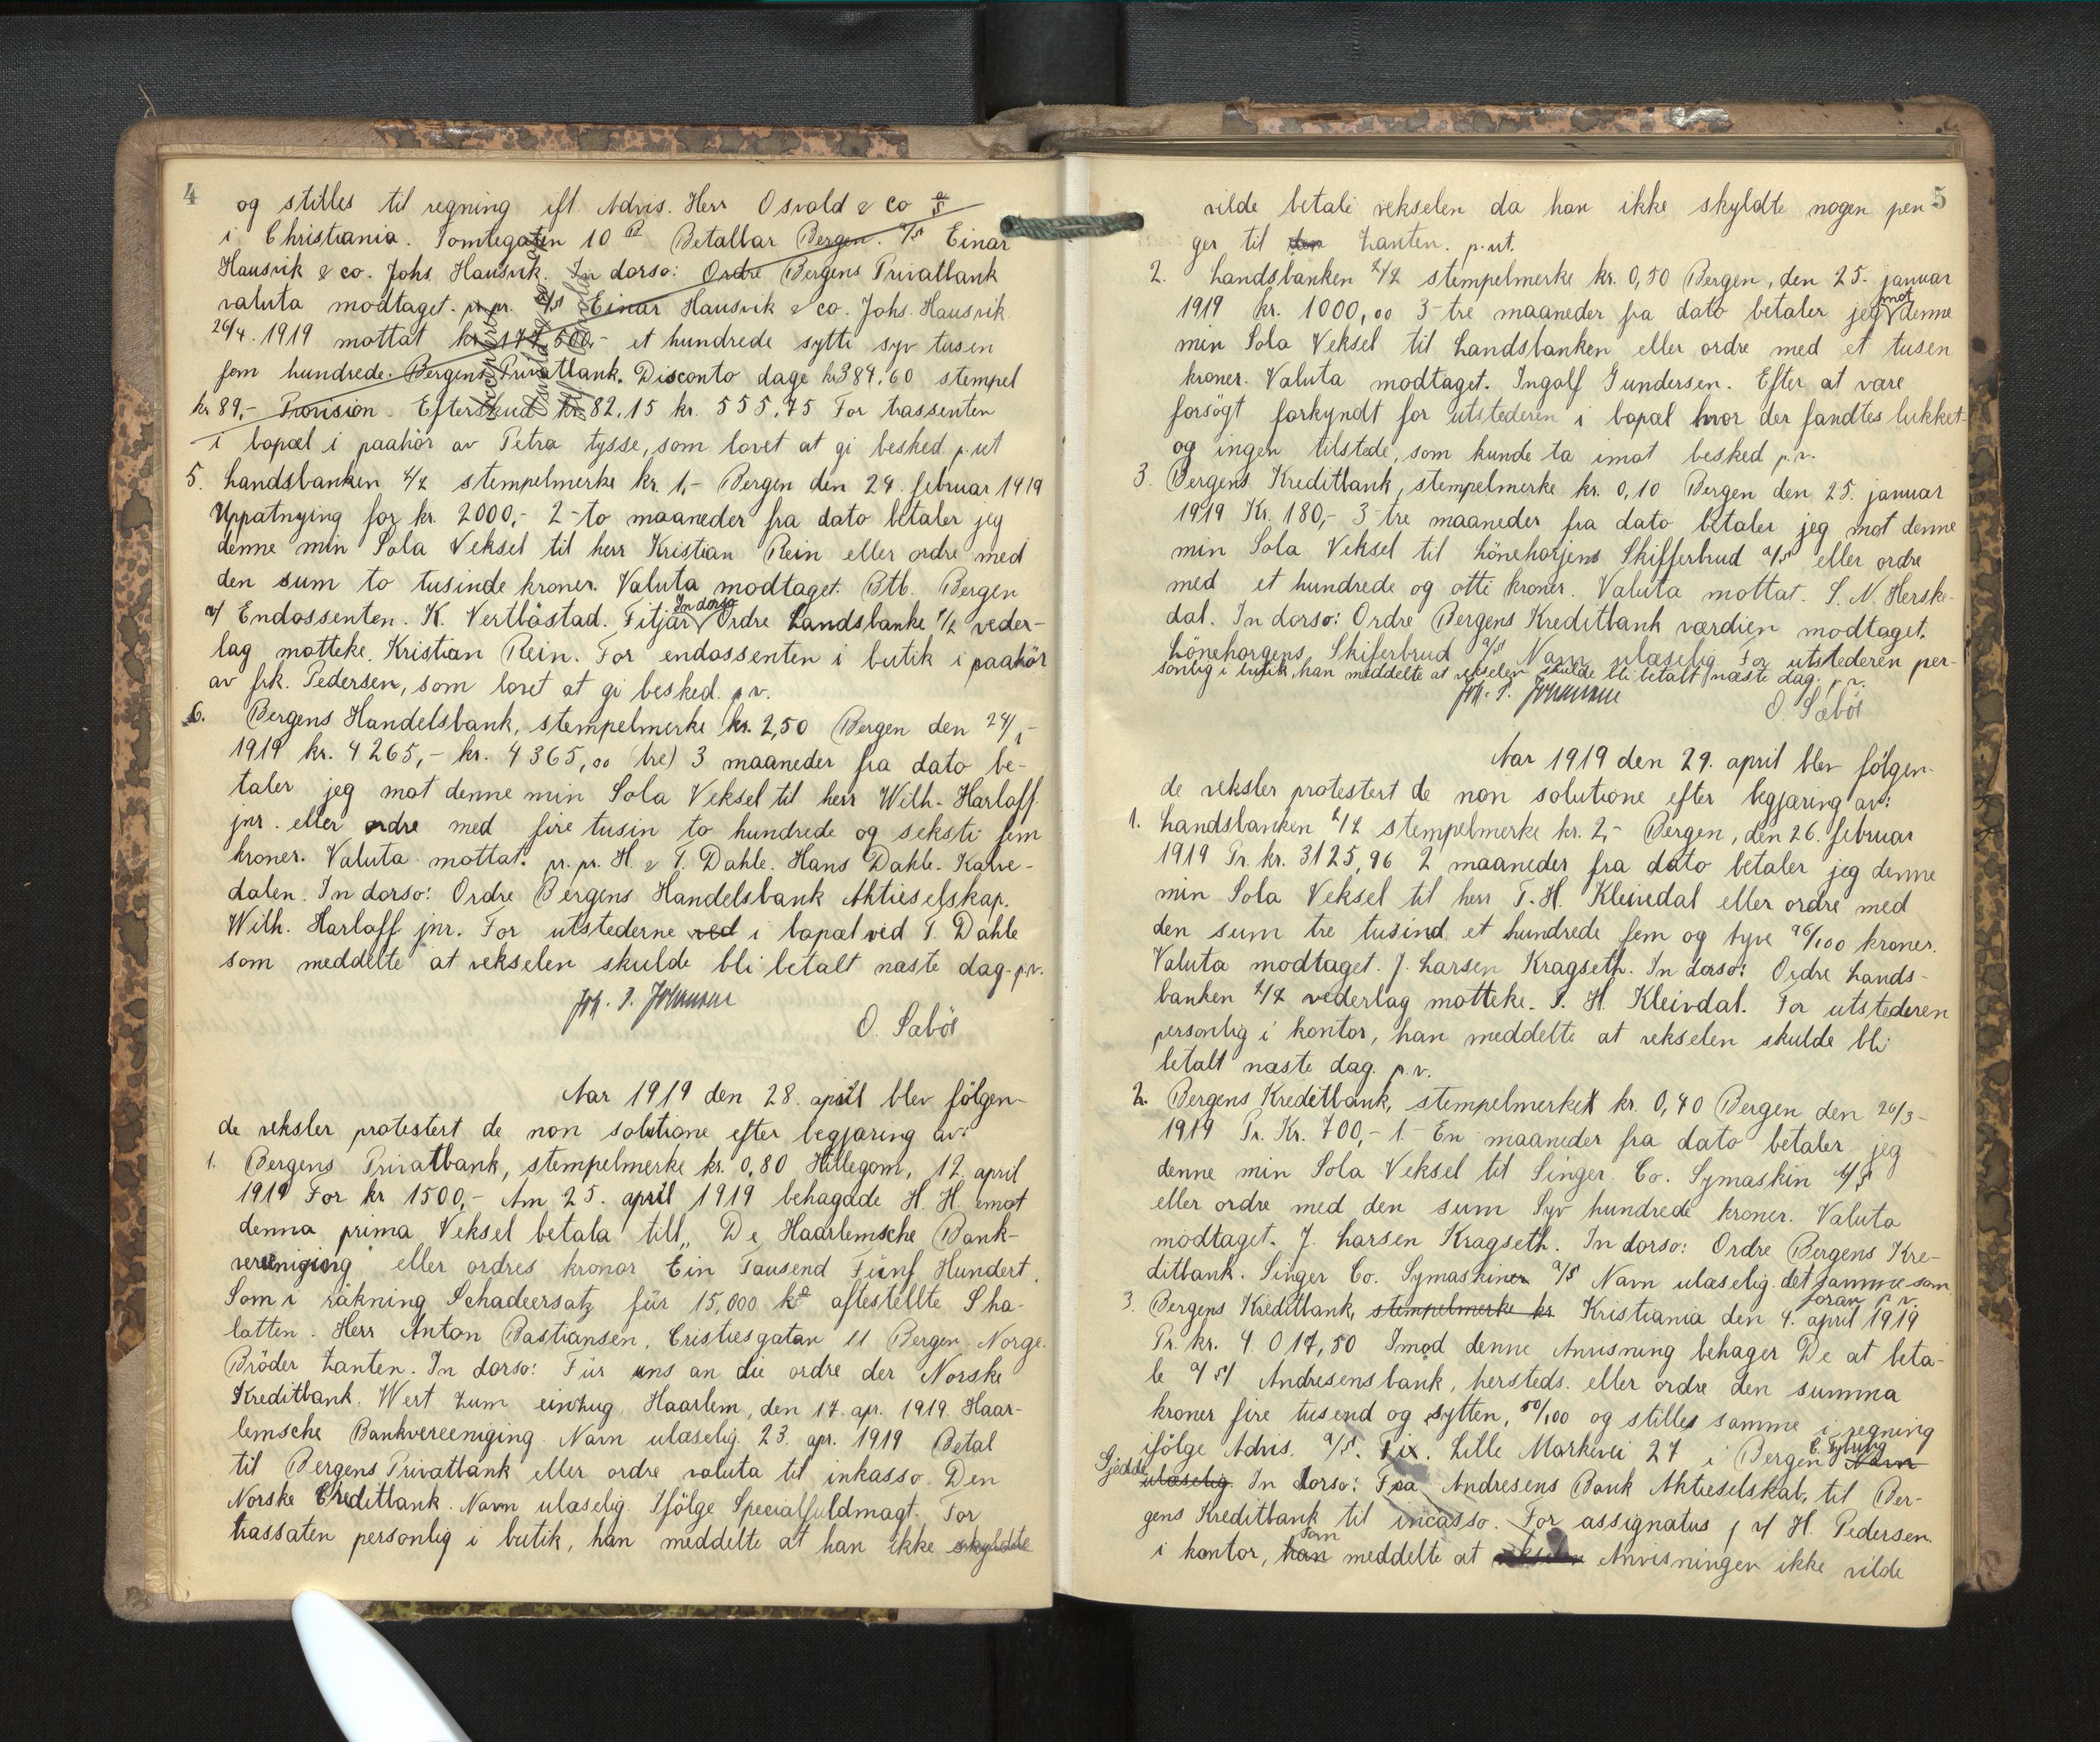 4
og stilles til regning ifl. Advis. Herr Osvald & co A/S
i Christiania. Tomtegaten 10 B Betalbar Bergen. A/S Einar
Hausvik & co. Johs. Hausvik. In dorso: Ordre Bergens Privatbank
valuta modtaget. pr. pr. A/S Einar Hausvik & co. Johs. Hausvik
26/4. 1919 mottat kr. 177 500,- et hundrede sytti syv tusen
fem hundrede. Bergens Privatbank. Disconto dage kr 384,60 stempel
kr 89,- Provision. Efterskud kr 82.15 kr. 555.75 For trassenten
i bopæl i paahör av Petra tysse, som lovet at gi besked p. ut
5. Landsbanken A/L stempelmerke kr. 1,- Bergen den 24. februar 1919
for kr. 2000,- 2-to maaneder fra dato betaler jeg
denne min Sola Veksel til herr Kristian Rein eller ordre med
den sum to tusinde kroner. Valuta modtaget. Btb. Bergen
v/ Endossenten. K. Vertbåstad. Fitjar In dorso Ordre Landsbanke A/L veder-
lag motteke. Kristian Rein. For endossenten i butik i paahör
av frk. Pedersen, som lovet at gi besked. p. v.
6. Bergens Handelsbank, stempelmerke kr. 2,50 Bergen den 24/1-
1919 kr. 4265,- kr. 4365,00 tre) 3 maaneder fra dato be-
taler jeg mot denne min Sola Veksel til herr Wilh. Harloff
jnr. eller ordre med fire tusin to hundrede og seksti fem
kroner. Valuta mottat. pr. pr. H. & T. Dahle. Hans Dahle. Kalve-
dalen. In dorso: Ordre Bergens Handelsbank Aktieselskap.
Wilh. Harloff jnr. For utstederne ved i bopæl ved T. Dahle
som meddelte at vekselen skulde bli betalt næste dag. p. v.
Joh. S. Johnsen
O. Sæbö
Aar 1919 den 28. april blev fölgen-
de veksler protestert de non solutione efter begjæring av:
1. Bergens Privatbank, stempelmerke kr. 0,80 Hillegom, 12. april
1919 For kr 1500,- Am 25. april 1919 behagade H. H emot
denna prima Veksel betala till „De Haarlemsche Bank-
vereeniging" eller ordres kronor Ein Tausend Fünf Hundert.
Som i räkning Schadeersatz für 15,000 ko aftestellte Scha-
lotten. Herr Anton Bastiansen, Cristiesgatan 11 Bergen Norge.
Bröder Zanten. In dorso: Für uns an die ordre der Norske
Kreditbank. Wert zum einzug. Haarlem, den 17. apr. 1919. Haar-
lemsche Bankvereeniging Navn ulæselig. 23. apr. 1919 Betal
til Bergens Privatbank eller ordre valuta til inkasso. Den
Norske Creditbank. Navn ulæselig. Ifölge Specialfuldmagt. For
trassaten personlig i butik, han meddelte at han ikke skyldte
5
vilde betale vekselen da han ikke skyldte nogen pen
ger til den Zanten. p. ut.
2. Landsbanken A/L stempelmerke kr. 0,50 Bergen, den 25. januar
1919 kr. 1000,00 3-tre maaneder fra dato betaler jeg mot denne
min Sola Veksel til Landsbanken eller ordre med et tusen
kroner. Valuta modtaget. Ingolf Gundersen. Efter at være
forsögt forkyndt for utstederen i bopæl hvor der fandtes lukket
og ingen tilstede, som kunde ta imot besked p. v.
3. Bergens Kreditbank, stempelmerke kr. 0,10 Bergen den 25. januar
1919 Kr. 180,- 3-tre maaneder fra dato betaler jeg mot denne
min Sola Veksel til Lönehorjens Skifferbrud A/S eller ordre
med et hundrede og otti kroner. Valuta mottat. S. N. Herske-
dal. In dorso: Ordre Bergens Kreditbank værdien modtaget.
Lönehorgens Skiferbrud A/S Navn ulæselig For utstederen per-
sonlig i butik, han meddelte at vekselen skulde bli betalt næste dag. p. v.
Joh. S. Johnsen
O. Sæbö
Aar 1919 den 29. april blev fölgen-
de veksler protestert de non solutione efter begjæring av:
1. Landsbanken A/L stempelmerke kr. 2,- Bergen, den 26. februar
1919 Pr. kr. 3125,96 2 maaneder fra dato betaler jeg denne
min Sola Veksel til herr T. H. Kleivedal eller ordre med
den sum tre tusind et hundrede fem og tyve 96/100 kroner.
Valuta modtaget. J. Larsen Kragseth. In dorso: Ordre Lands-
banken A/L vederlag motteke. T. H. Kleivdal. For utstederen
personlig i kontor, han meddelte at vekselen skulde bli
betalt næste dag. p. v.
2. Bergens Kreditbank, stempelmerket kr. 0,40 Bergen den 26/3-
1919 Pr. Kr. 700,- 1- En maaneder fra dato betaler jeg
denne min Sola Veksel til Singer Co. Symaskin A/S
eller ordre med den sum Syv hundrede kroner. Valuta
modtaget. J. Larsen Kragseth. In dorso: Ordre Bergens Kre-
ditbank. Singer Co. Symaskiner A/S Navn ulæselig. det samme som
foran p. v.
3. Bergens Kreditbank, stempelmerke kr. Kristiania den 4. april 1919
Pr. kr. 4.017,50 Imod denne Anvisning behager De at beta-
le A/S Andresens bank, hersteds. eller ordre den summa
kroner fire tusend og sytten, 50/100 og stilles samme i regning
ifölge Advis. A/S. Fix. Lille Markevei 27 i Bergen Navn
ulæselig. In dorso: Fra Andresens Bank Aktieselskab, til Ber-
gens Kreditbank til incasso. For assignatus v/ H. Pedersen.
i kontor, han som meddelte at vekselen Anvisningen ikke vilde